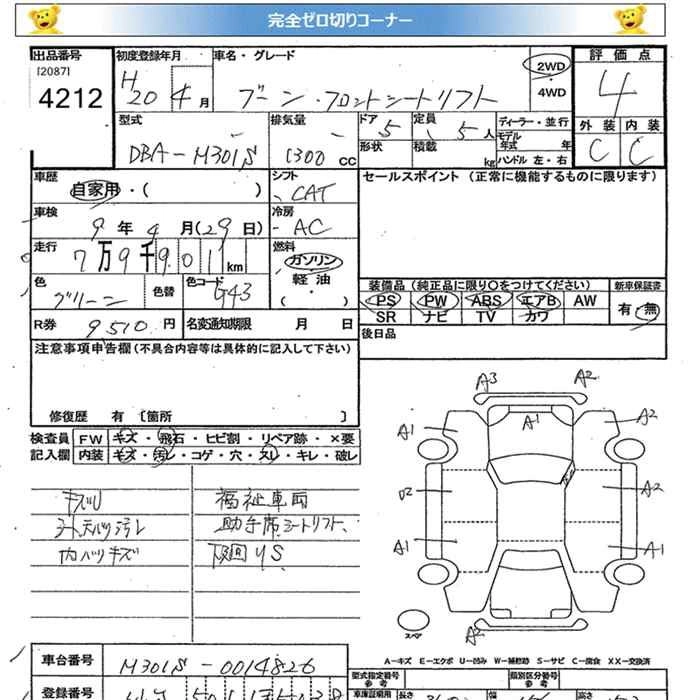 完全ゼロ切りコーナー
出品番号
[2087]
4212
初度登録年月
H
20 年 4 月
車名・グレード
ブーン・フロントシートリフト
2WD
・
4WD
評価点
4
外装 内装
C C
型式
DBA-M301S
排気量
1300 cc
ドア 5
形状
定員 5人
積載 kg
ディーラー・並行
モデル年式 年
ハンドル 左・右
車歴
自家用・( )
シフト
CAT
セールスポイント (正常に機能するものに限ります)
車検
9 年 4 月(29日)
冷房
AC
走行
7万9千901km
燃料
ガソリン
・
軽油
・
( )
色
グリーン
色替
色コード
G43
装備品 (純正品に限り○をつけてください)
PS PW ABS エアB AW
SR ナビ TV カワ
新車保証書
有・無
R券 9510 円
名変通知期限 月 日
後日品
注意事項申告欄(不具合内容等は具体的に記入して下さい)
修復歴 有 [箇所 ]
検査員
記入欄
FW キズ・飛石・ヒビ割・リペア跡・×要
内装 キズ・汚レ・コゲ・穴・スレ・キレ・破レ
キズU
シート天バリ汚レ
内バリキズ
福祉車両
助手席シートリフト、
A3 A2
A1 A1 A2
U2 A2
A1 A1
A2
スペア
A-キズ E-エクボ U-凹み W-補修跡 S-サビ C-腐食 XX-交換済
車台番号
M301S-0014826
登録番号
型式指定番号
参考
類別区分番号
参考
車庫証明用
長さ
幅
高さ